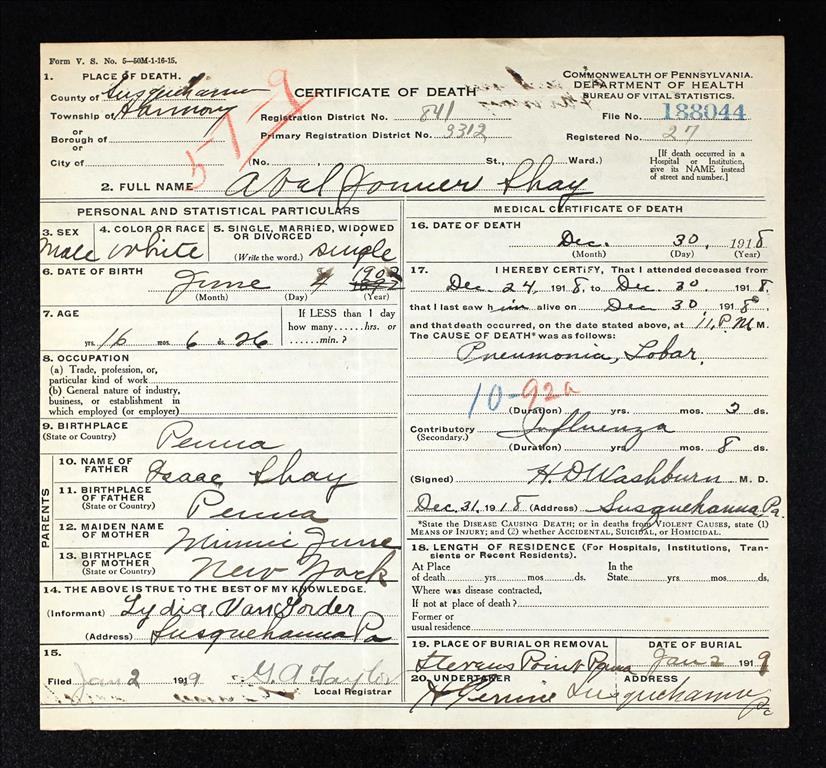 Form V. S. No. 5—50M-1-16-15.
1. PLACE OF DEATH.
County of Susquehanna
Township of Harmony
or
Borough of
or
City of
CERTIFICATE OF DEATH
Registration District No. 841
Primary Registration District No. 9312
(No. , St., Ward.)
COMMONWEALTH OF PENNSYLVANIA.
DEPARTMENT OF HEALTH
BUREAU OF VITAL STATISTICS.
File No. 188044
Registered No. 27
[If death occurred in a
Hospital or Institution,
give its NAME instead
of street and number.]
57-9
2. FULL NAME Shay
PERSONAL AND STATISTICAL PARTICULARS
3. SEX
Male
4. COLOR OR RACE
White
5. SINGLE, MARRIED, WIDOWED
OR DIVORCED
(Write the word.) Single
6. DATE OF BIRTH
June 4 1902
(Month) (Day) (Year)
7. AGE
16 yrs. 6 mos. 26 ds.
If LESS than 1 day
how many......hrs. or
......min.?
8. OCCUPATION
(a) Trade, profession, or,
particular kind of work
(b) General nature of industry,
business, or establishment in
which employed (or employer)
9. BIRTHPLACE
(State or Country) Penna
PARENTS
10. NAME OF
FATHER Isaac Shay
11. BIRTHPLACE
OF FATHER
(State or Country) Penna
12. MAIDEN NAME
OF MOTHER Minnie June
13. BIRTHPLACE
OF MOTHER
(State or Country) New York
14. THE ABOVE IS TRUE TO THE BEST OF MY KNOWLEDGE.
(Informant) Lydia VanGorder
(Address) Susquehanna Pa
15.
Filed Jan 2 1919 G. A. Taylor
Local Registrar
MEDICAL CERTIFICATE OF DEATH
16. DATE OF DEATH
Dec. 30, 1918
(Month) (Day) (Year)
17. I HEREBY CERTIFY, That I attended deceased from
Dec. 24, 1918, to Dec. 30 1918,
that I last saw him alive on Dec 30, 1918,
and that death occurred, on the date stated above, at 11, P. M M.
The CAUSE OF DEATH* was as follows:
Pneumonia, Lobar.
10-92a
(Duration) yrs. mos. 3 ds.
Contributory Influenza
(Secondary.)
(Duration) yrs. mos. 8 ds.
(Signed) H. D. Washburn M. D.
Dec. 31, 1918 (Address) Susquehanna, Pa.
*State the DISEASE CAUSING DEATH; or in deaths from VIOLENT CAUSES, state (1)
MEANS OF INJURY; and (2) whether ACCIDENTAL, SUICIDAL, OR HOMICIDAL.
18. LENGTH OF RESIDENCE (For Hospitals, Institutions, Tran-
sients or Recent Residents).
At Place
of death......yrs......mos......ds.
In the
State......yrs......mos......ds.
Where was disease contracted,
If not at place of death?
Former or
usual residence
19. PLACE OF BURIAL OR REMOVAL
Stevens Point Penna
DATE OF BURIAL
Jan 2 1919
20. UNDERTAKER
H Perrine
ADDRESS
Susquehanna
Pa